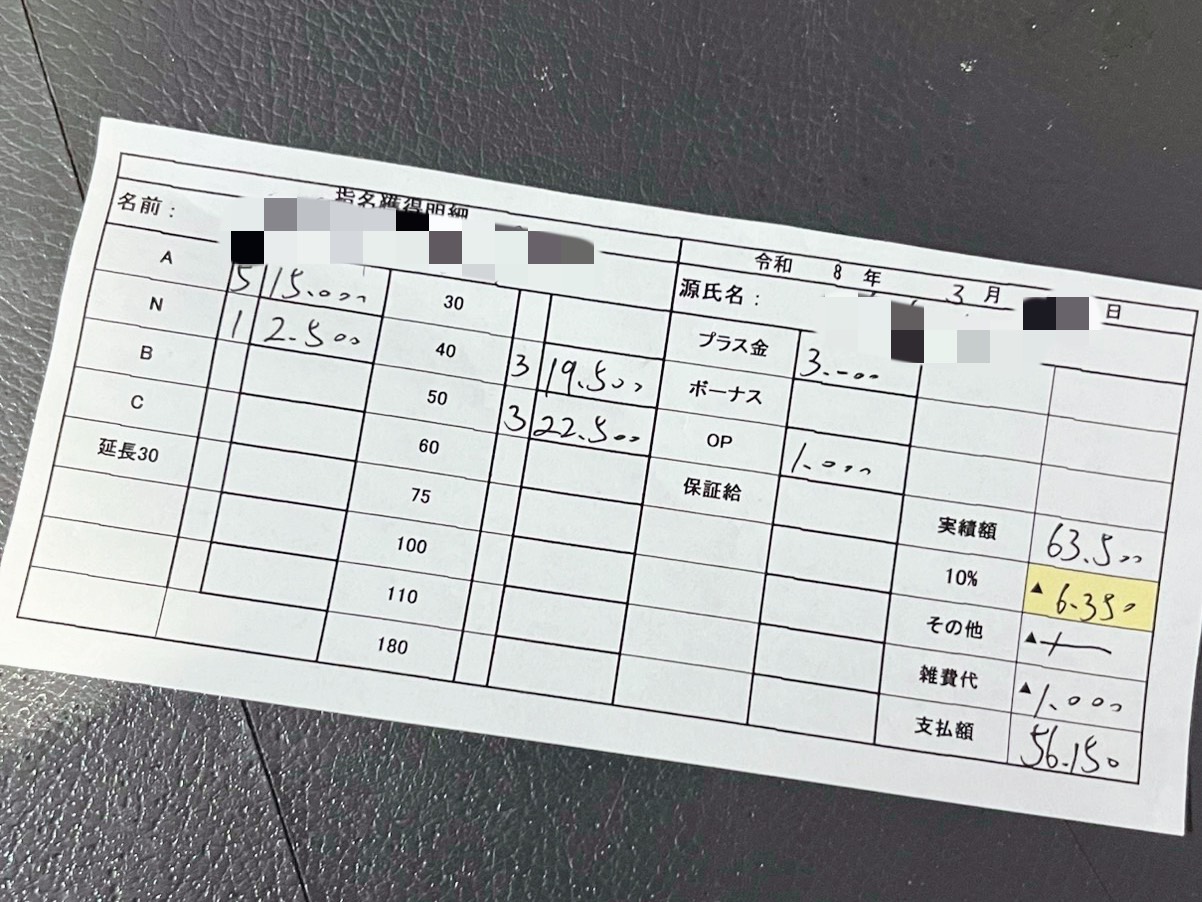 指名獲得明細
名前：
令和 8 年 3 月 日
源氏名：
A 5 15.000 30 プラス金 3.000
N 1 2.500 40 3 19.500 ボーナス
B 50 3 22.500 OP 1.000
C 60 保証給
延長30 75 実績額 63.500
100 10% ▲ 6.350
110 その他 ▲
180 雑費代 ▲ 1.000
支払額 56.150